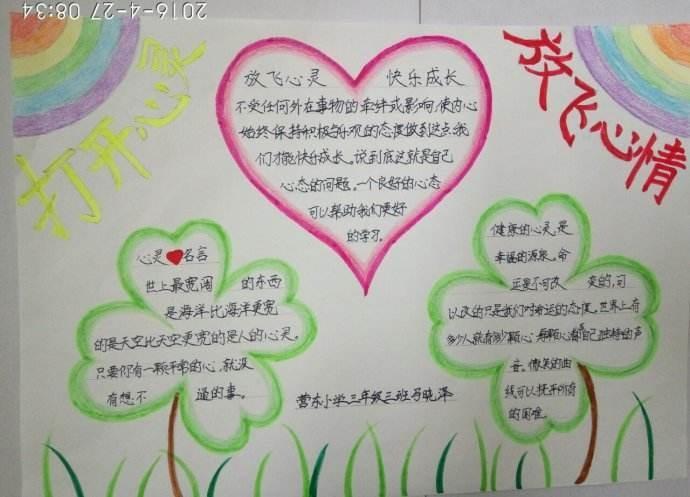 2016-4-27 08:34
打开心灵
放飞心情
放飞心灵 快乐成长
不受任何外在事物的牵绊或影响使内心
始终保持积极与乐观的态度做到这点我
们才能快乐成长。说到底这就是自己
心态的问题。一个良好的心态
可以帮助我们更好
的学习。
心灵❤名言
世上最宽阔 的东西
是海洋比海洋更宽
的是天空比天空更宽的是人的心灵。
只要你有一颗平常的心,就没
有想不 通的事。
健康的心灵,是
幸福的源泉。命
运是不可改 变的,可
以改的只是我们对命运的态度。世界上有
多少人就有多少颗心,每颗心都有自己独特的声
音。微笑的曲
线可以抚平所有
的困难。
营东小学三年级三班马晓泽